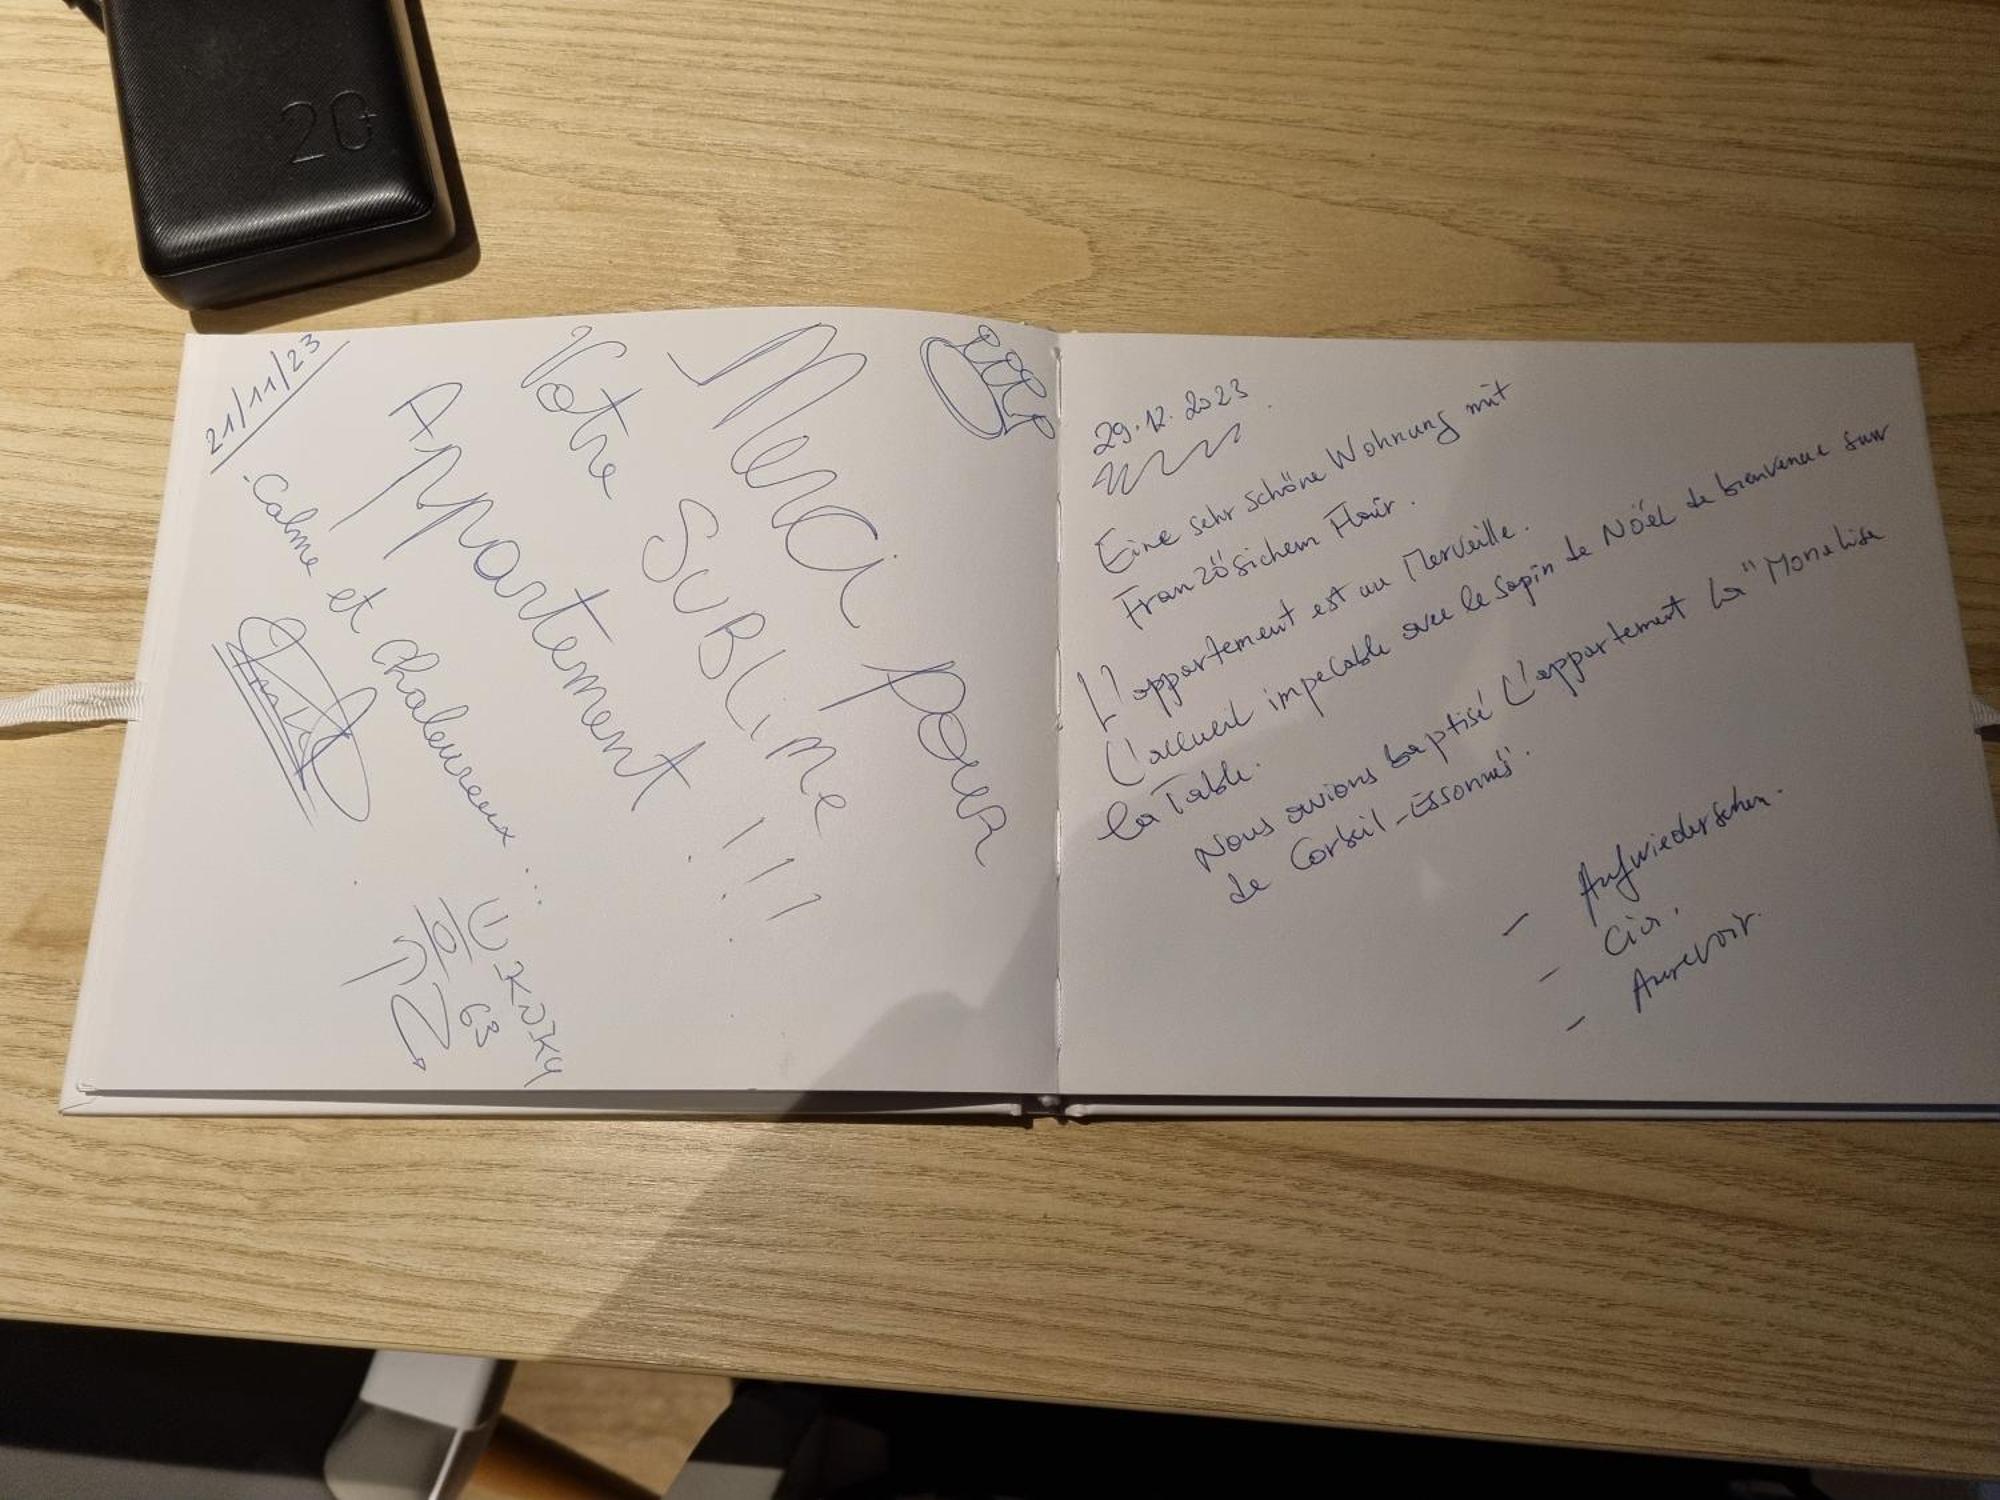 20
21/11/23
Merci pour
Votre SUBLime
Appartement !!!
. Calme et chaleureux ...
63
29.12.2023.
Eine sehr schöne Wohnung mit
Französichem Flair.
L'appartement est un Merveille.
L'accueil impecable avec le sapin de Nöel de bienvenue sur
la Table.
Nous avions baptisé L'appartement la "Monalisa
de Corbeil-Essonnes".
- Aufwiedersehen.
- Ciao.
- Aurevoir.